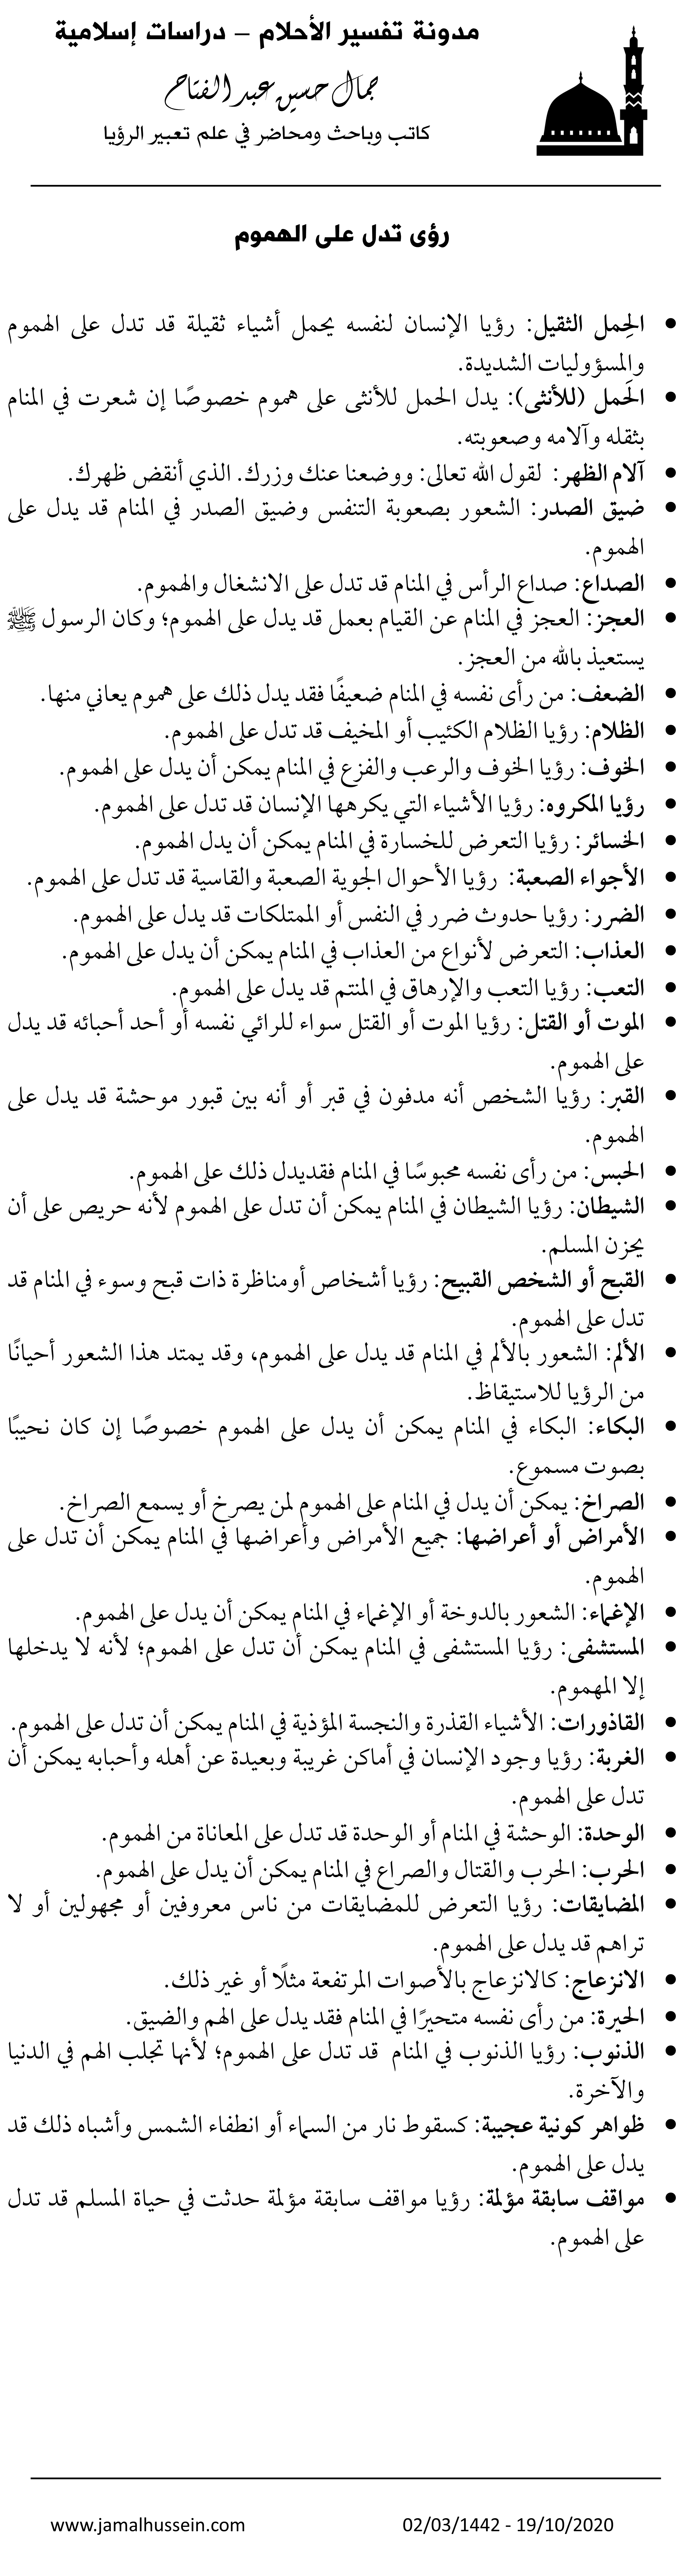 مدونة تفسير الأحلام – دراسات إسلامية
جمال حسين عبد الفتاح
كاتب وباحث ومحاضر في علم تعبير الرؤيا
رؤى تدل على الهموم
• الحِمل الثقيل: رؤيا الإنسان لنفسه يحمل أشياء ثقيلة قد تدل على الهموم
والمسؤوليات الشديدة.
• الحَمل (للأنثى): يدل الحمل للأنثى على هموم خصوصًا إن شعرت في المنام
بثقله وآلامه وصعوبته.
• آلام الظهر: لقول الله تعالى: ووضعنا عنك وزرك. الذي أنقض ظهرك.
• ضيق الصدر: الشعور بصعوبة التنفس وضيق الصدر في المنام قد يدل على
الهموم.
• الصداع: صداع الرأس في المنام قد تدل على الانشغال والهموم.
• العجز: العجز في المنام عن القيام بعمل قد يدل على الهموم؛ وكان الرسول ﷺ
يستعيذ بالله من العجز.
• الضعف: من رأى نفسه في المنام ضعيفًا فقد يدل ذلك على هموم يعاني منها.
• الظلام: رؤيا الظلام الكئيب أو المخيف قد تدل على الهموم.
• الخوف: رؤيا الخوف والرعب والفزع في المنام يمكن أن يدل على الهموم.
• رؤيا المكروه: رؤيا الأشياء التي يكرهها الإنسان قد تدل على الهموم.
• الخسائر: رؤيا التعرض للخسارة في المنام يمكن أن يدل الهموم.
• الأجواء الصعبة: رؤيا الأحوال الجوية الصعبة والقاسية قد تدل على الهموم.
• الضرر: رؤيا حدوث ضرر في النفس أو الممتلكات قد يدل على الهموم.
• العذاب: التعرض لأنواع من العذاب في المنام يمكن أن يدل على الهموم.
• التعب: رؤيا التعب والإرهاق في المنتم قد يدل على الهموم.
• الموت أو القتل: رؤيا الموت أو القتل سواء للرائي نفسه أو أحد أحبائه قد يدل
على الهموم.
• القبر: رؤيا الشخص أنه مدفون في قبر أو أنه بين قبور موحشة قد يدل على
الهموم.
• الحبس: من رأى نفسه محبوسًا في المنام فقديدل ذلك على الهموم.
• الشيطان: رؤيا الشيطان في المنام يمكن أن تدل على الهموم لأنه حريص على أن
يحزن المسلم.
• القبح أو الشخص القبيح: رؤيا أشخاص أومناظرة ذات قبح وسوء في المنام قد
تدل على الهموم.
• الألم: الشعور بالألم في المنام قد يدل على الهموم، وقد يمتد هذا الشعور أحيانًا
من الرؤيا للاستيقاظ.
• البكاء: البكاء في المنام يمكن أن يدل على الهموم خصوصًا إن كان نحيبًا
بصوت مسموع.
• الصراخ: يمكن أن يدل في المنام على الهموم لمن يصرخ أو يسمع الصراخ.
• الأمراض أو أعراضها: جميع الأمراض وأعراضها في المنام يمكن أن تدل على
الهموم.
• الإغماء: الشعور بالدوخة أو الإغماء في المنام يمكن أن يدل على الهموم.
• المستشفى: رؤيا المستشفى في المنام يمكن أن تدل على الهموم؛ لأنه لا يدخلها
إلا المهموم.
• القاذورات: الأشياء القذرة والنجسة المؤذية في المنام يمكن أن تدل على الهموم.
• الغربة: رؤيا وجود الإنسان في أماكن غريبة وبعيدة عن أهله وأحبابه يمكن أن
تدل على الهموم.
• الوحدة: الوحشة في المنام أو الوحدة قد تدل على المعاناة من الهموم.
• الحرب: الحرب والقتال والصراع في المنام يمكن أن يدل على الهموم.
• المضايقات: رؤيا التعرض للمضايقات من ناس معروفين أو مجهولين أو لا
تراهم قد يدل على الهموم.
• الانزعاج: كالانزعاج بالأصوات المرتفعة مثلًا أو غير ذلك.
• الحيرة: من رأى نفسه متحيرًا في المنام فقد يدل على الهم والضيق.
• الذنوب: رؤيا الذنوب في المنام قد تدل على الهموم؛ لأنها تجلب الهم في الدنيا
والآخرة.
• ظواهر كونية عجيبة: كسقوط نار من السماء أو انطفاء الشمس وأشباه ذلك قد
يدل على الهموم.
• مواقف سابقة مؤلمة: رؤيا مواقف سابقة مؤلمة حدثت في حياة المسلم قد تدل
على الهموم.
www.jamalhussein.com 02/03/1442 - 19/10/2020